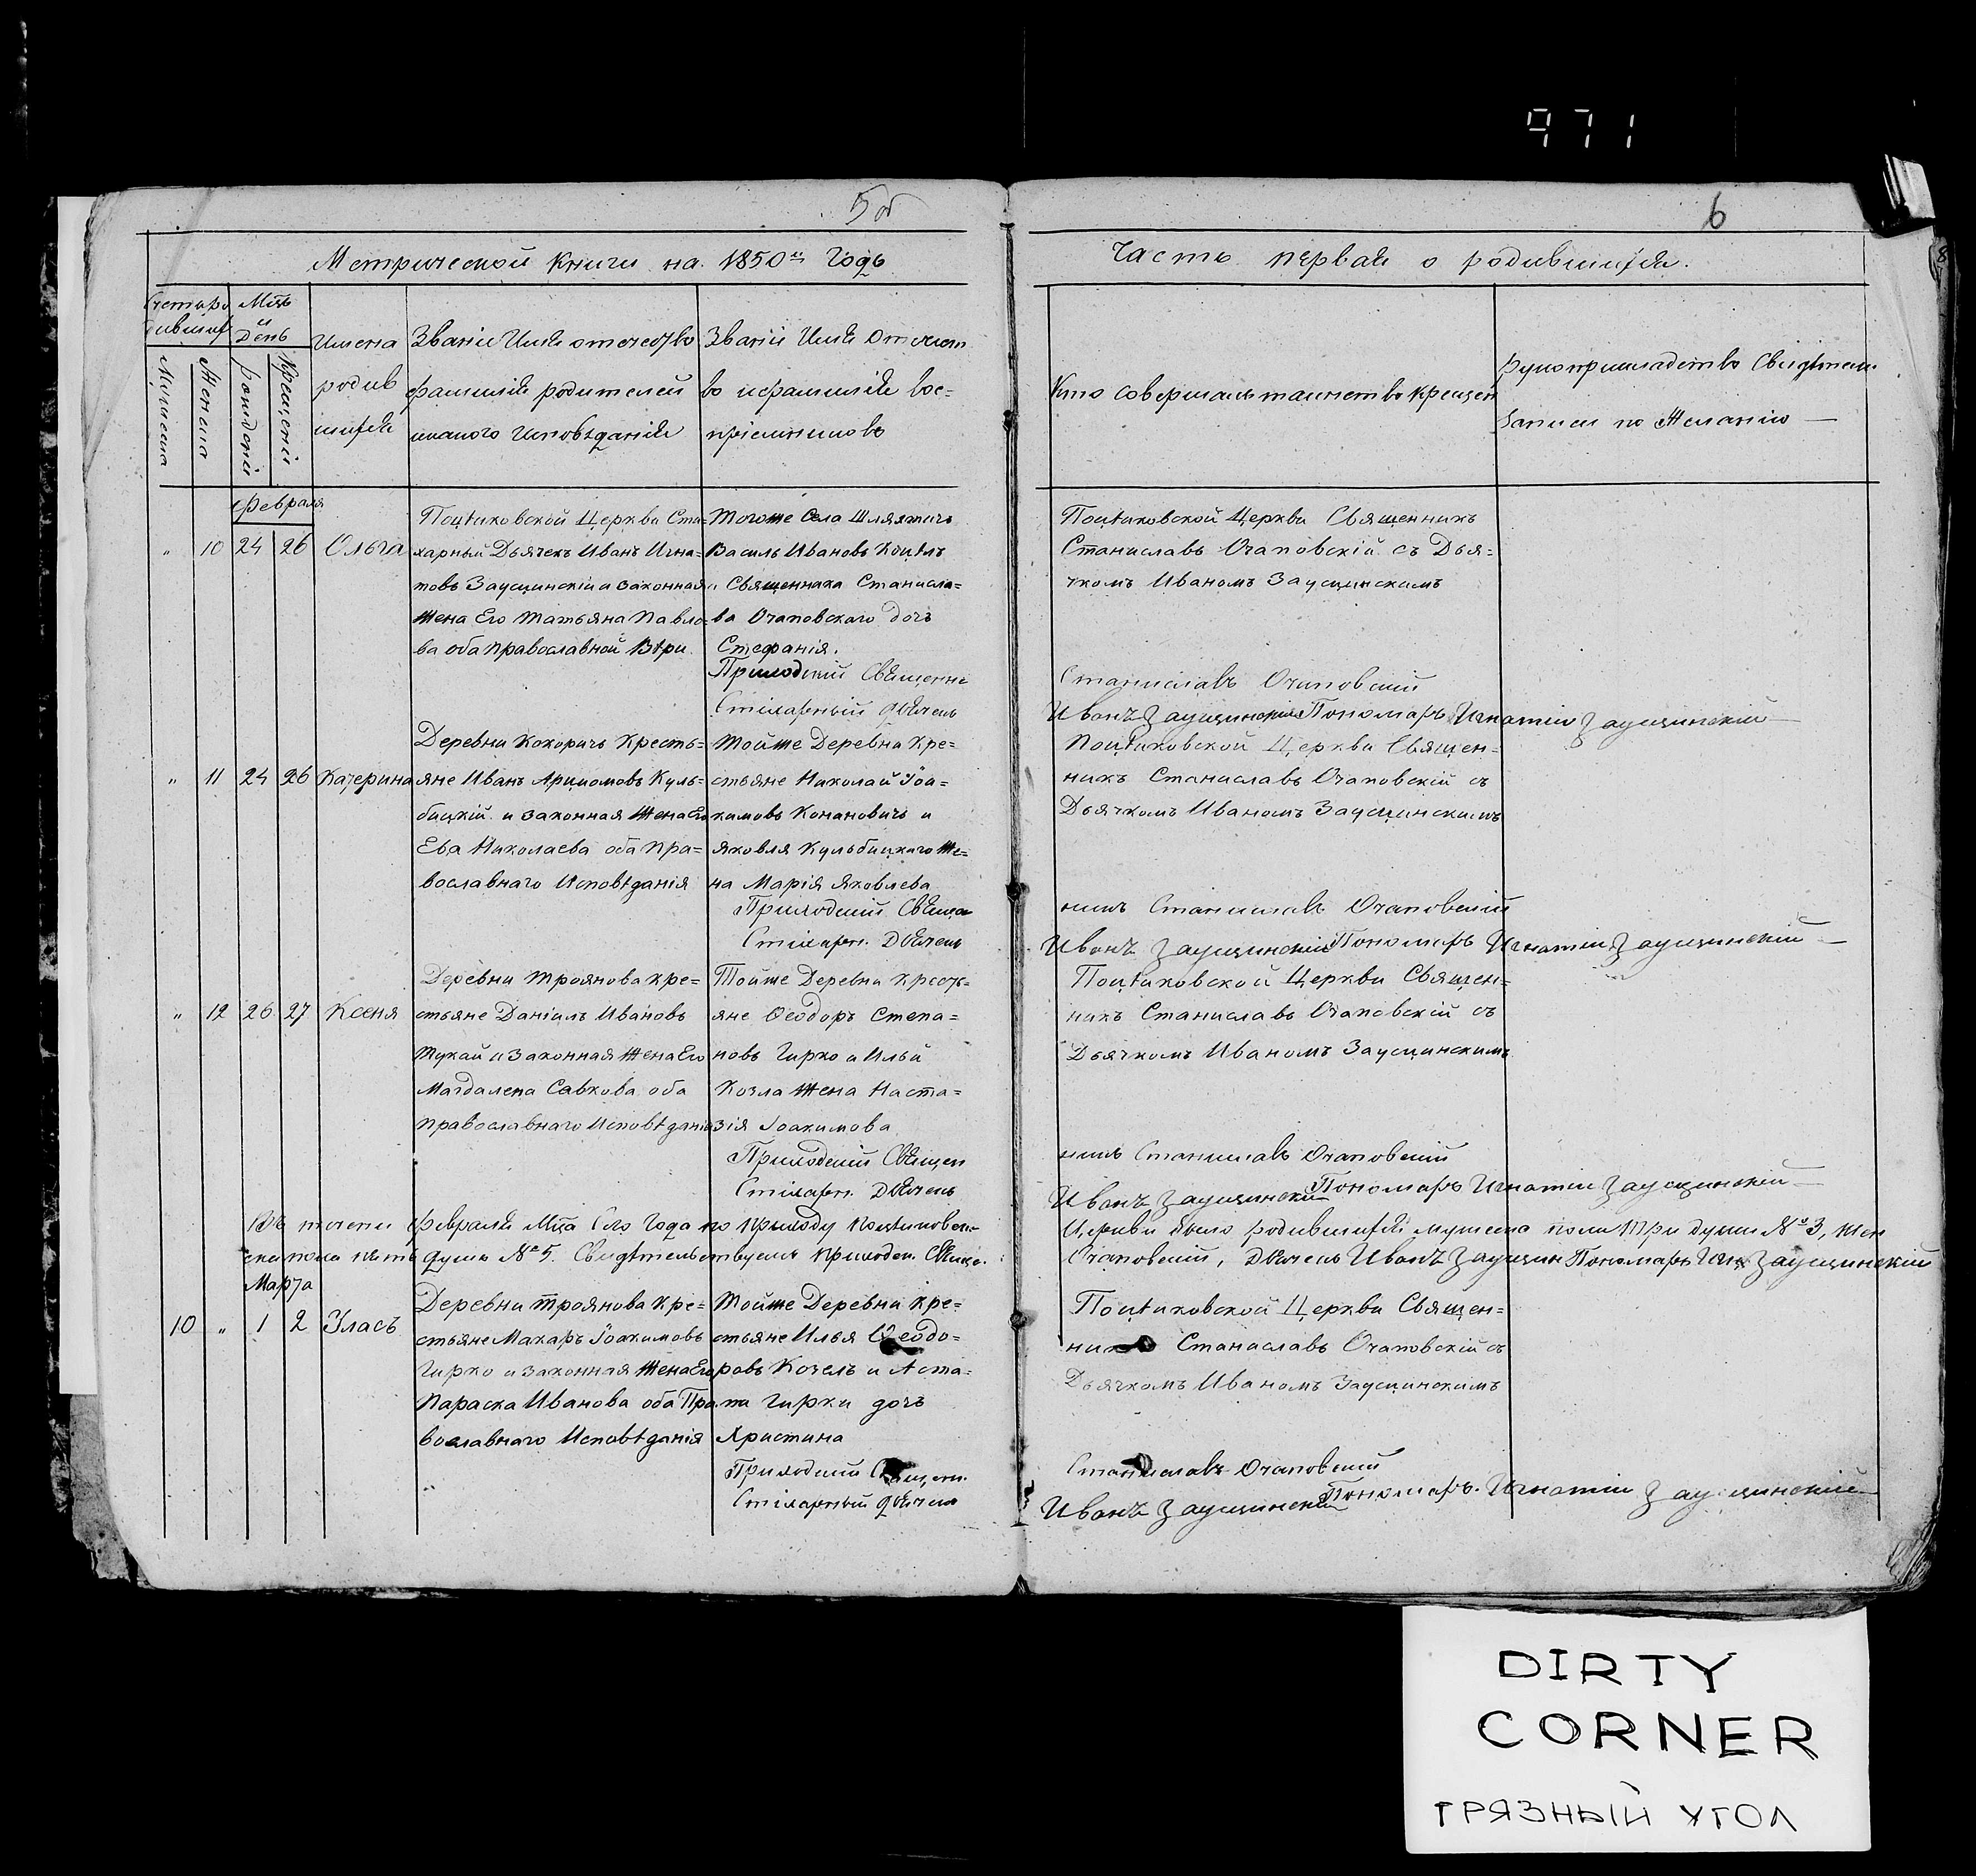 971
5об
6
Метрической Книги на 1850й Годъ
Часть первая о родившихся.
Счетъ ро
дившихся
Мцъ
и
День
Мужеска
Женска
рожденія
Крещенія
Имена
родив
шихся
Званіе Имя отечество
фамилія родителей
икакого исповѣданія
Званіе Имя Отечест
во ифамилія вос=
пріемниковъ
Кто совершалъ таинство крещен
Рукоприкладство Свидѣтел.
записи по Желанію —
Февраля
" 10 24 26 Ольга
Поцѣйковской Церкви Сти=
харный Дьячекъ Иванъ Игна=
товъ Заусцинскій и законная
Жена Его Татьяна Павло=
ва оба православной Вѣри.
Тогоже Села Шляхтичъ
Василь Ивановъ Коцѣлъ
и Священника Станисла=
ва Очаповскаго дочь
Стефанія.
Приходскій Священни
Стихарный Дьячекъ
Поцѣйковской Церкви Священникъ
Станиславъ Очаповскій съ Дья=
чкомъ Иваномъ Заусцинскимъ
Станиславъ Очаповскій
Иванъ Заусцинскій Пономаръ Игнатій Заусцинскій —
" 11 24 26 Качерина
Деревни Кокоричъ Кресть=
яне Иванъ Арциомовъ Куль=
бицкій и законная Жена Его
Ева Николаева оба Пра=
вославнаго Исповѣданія
Тойже Деревни Кре=
стьяне Николай Іоа=
кимовъ Конановичъ и
Яковля Кульбицкаго Же=
на Марія Яковлева
Приходскій Священ
Стихарн. Дьячекъ
Поцѣйковской Церкви Священ=
никъ Станиславъ Очаповскій съ
Дьячкомъ Иваномъ Заусцинскимъ
никъ Станиславъ Очаповскій
Иванъ Заусцинскій Пономаръ Игнатій Заусцинскій —
" 12 26 27 Ксеня
Деревни Троянова Кре=
стьяне Даніилъ Ивановъ
Тукай и Законная Жена Его
Магдалена Савкова оба
Православнаго Исповѣданія
Тойже Деревни Кресть=
яне Ѳеодоръ Степа=
новъ Гирко и Ильи
Козла Жена Наста=
зія Іоакимова
Приходскій Священ
Стихарн. Дьячекъ
Поцѣйковской Церкви Священ=
никъ Станиславъ Очаповскій съ
Дьячкомъ Иваномъ Заусцинскимъ
никъ Станиславъ Очаповскій
Иванъ Заусцинскій Пономаръ Игнатій Заусцинскій —
Въ теченіи Февраля Мца Сего Года по приходу Поцѣйковск.
Церкви было родившихся мужеска пола Три души № 3, жен
ска пола пять душъ № 5. Свидѣтельствуемъ Приходск. Свящ.
Очаповскій, Дьячекъ Иванъ Заусцин Пономаръ Игн Заусцинскій
Марта
10 " 1 2 Уласъ
Деревни Троянова Кре=
стьяне Макаръ Іоакимовъ
Гирко и законная Жена Его
Параска Иванова оба Пра
вославнаго Исповѣданія
Тойже Деревни Кре=
стьяне Илья Ѳеодо=
ровъ Козелъ и Аста=
па Гирки дочь
Христина
Приходскій Священ.
Стихарный Дьячекъ
Поцѣйковской Церкви Священ=
никъ Станиславъ Очаповскій съ
Дьячкомъ Иваномъ Заусцинскимъ
Станиславъ Очаповскій
Иванъ Заусцинскій Пономаръ Игнатій Заусцинскій —
DIRTY
CORNER
ГРЯЗНЫЙ УГОЛ